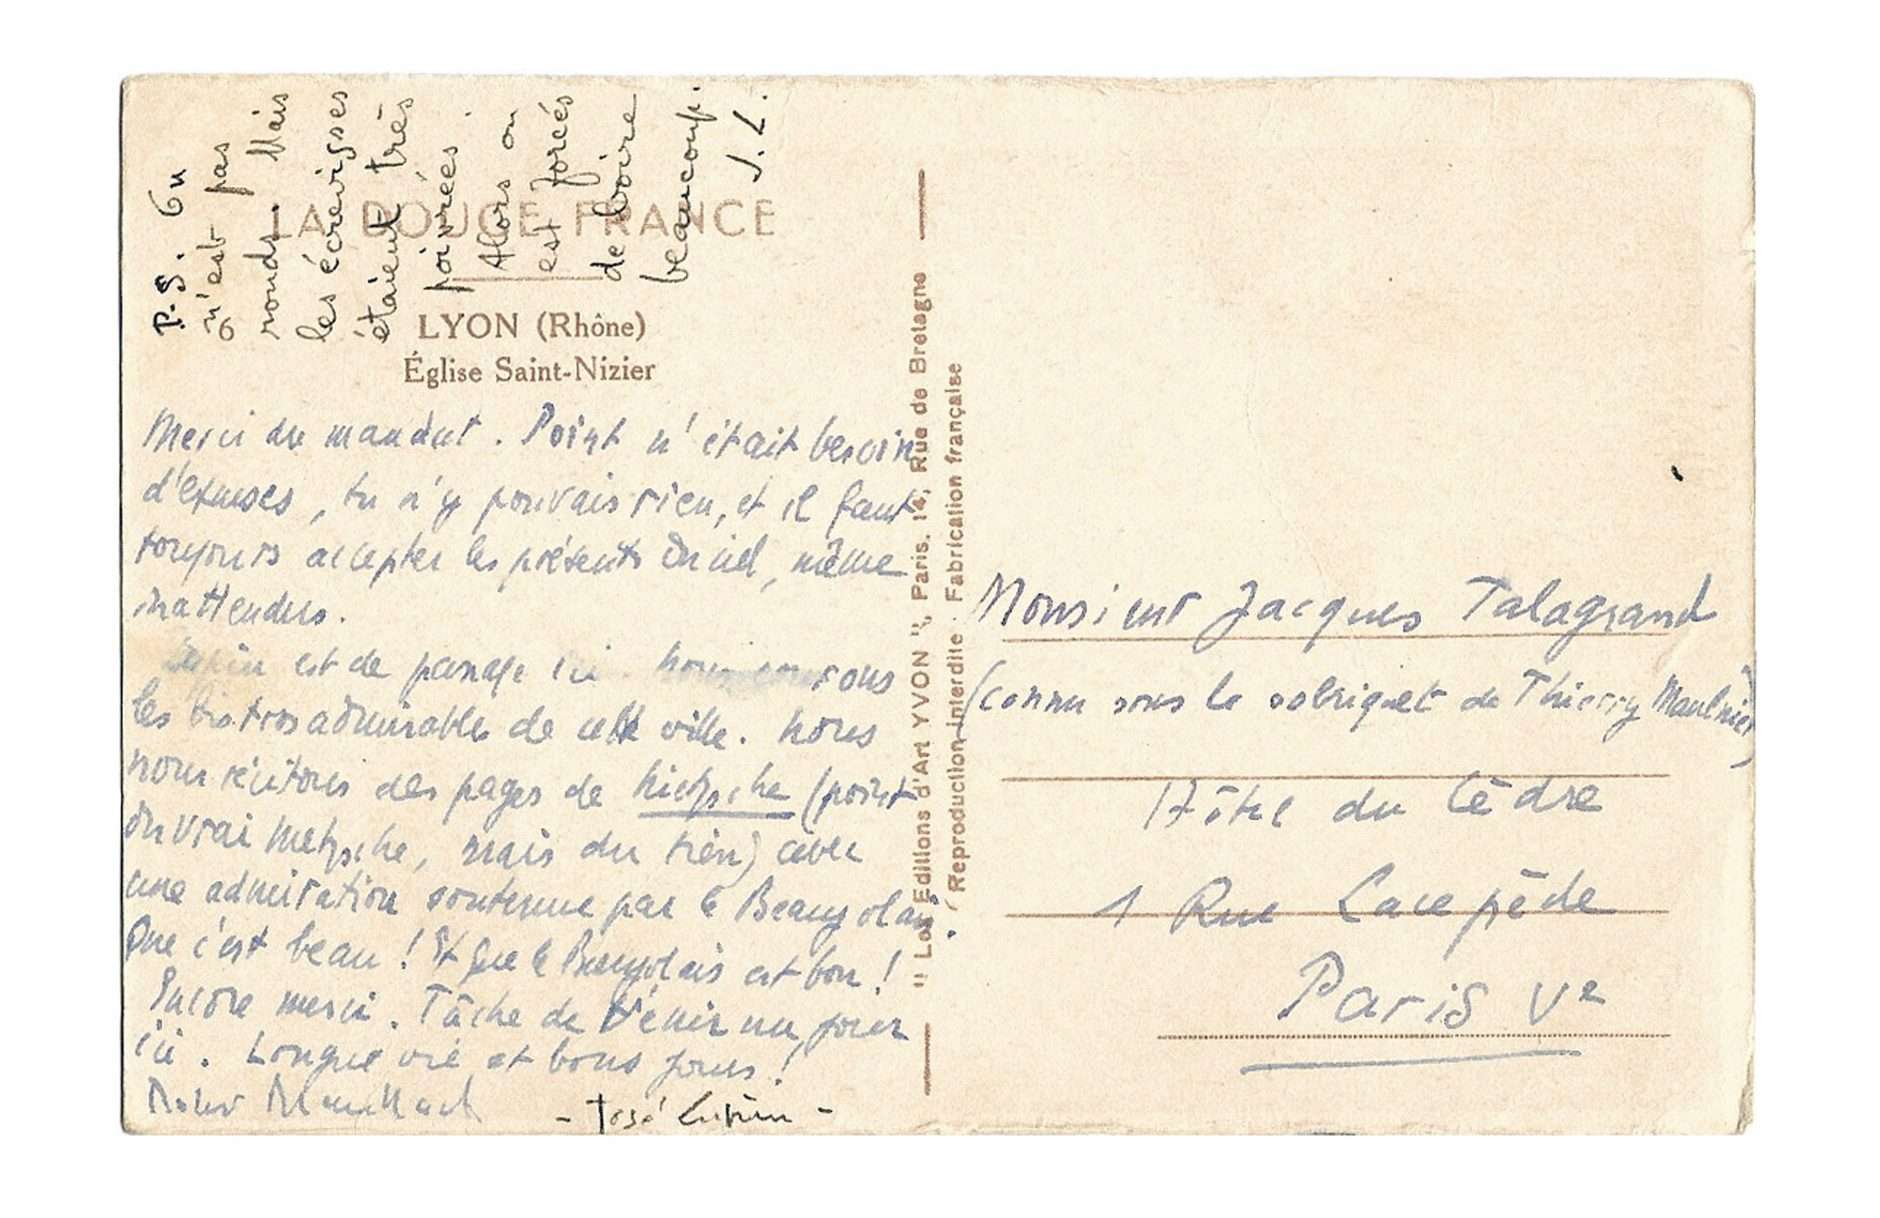 P.S. On
n'est pas
ronds. Mais
les écrevisses
étaient très
poivrées.
Alors on
est forcés
de boire
beaucoup.
J.L.
LA DOUCE FRANCE
LYON (Rhône)
Église Saint-Nizier
Merci du mandat. Point n'était besoin
d'excuses, tu n'y pouvais rien, et il faut
toujours accepter les présents du ciel, même
inattendus.
Lupin est de passage ici. Nous courons
les bistros admirables de cette ville. Nous
nous récitons des pages de Nietzsche (point
du vrai Nietzsche, mais du tien) avec
une admiration soutenue par le Beaujolais.
Que c'est beau! Et que le Beaujolais est bon!
Encore merci. Tâche de venir un jour
ici. Longue vie et bons jours!
- José Lupin -
"Les Editions d'Art YVON", Paris, 14, Rue de Bretagne
Reproduction Interdite. Fabrication française
Monsieur Jacques Talagrand
(connu sous le sobriquet de Thierry Maulnier)
Hôtel du Cèdre
1 Rue Lacepède
Paris Ve